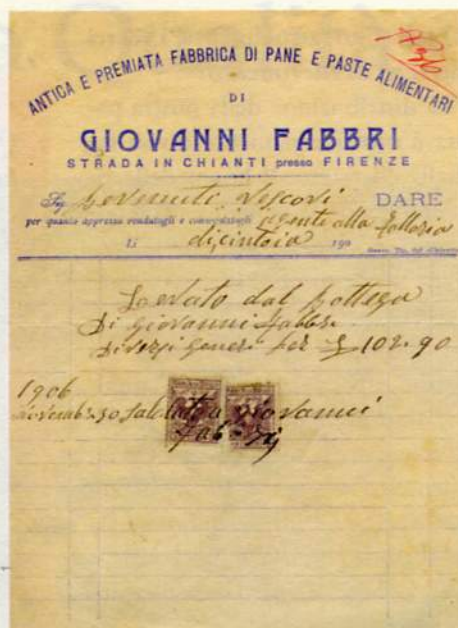 ANTICA E PREMIATA FABBRICA DI PANE E PASTE ALIMENTARI
DI
GIOVANNI FABBRI
STRADA IN CHIANTI presso FIRENZE
Sig Vescovi DARE
per quanto appresso vendutogli e consegnatogli agente alla fattoria
Li dicintoia 190
dal bottega
di Giovanni Fabbri
diversi generi per £ 102.90
1906
Novembre 30 saldato a Giovanni
Fabbri